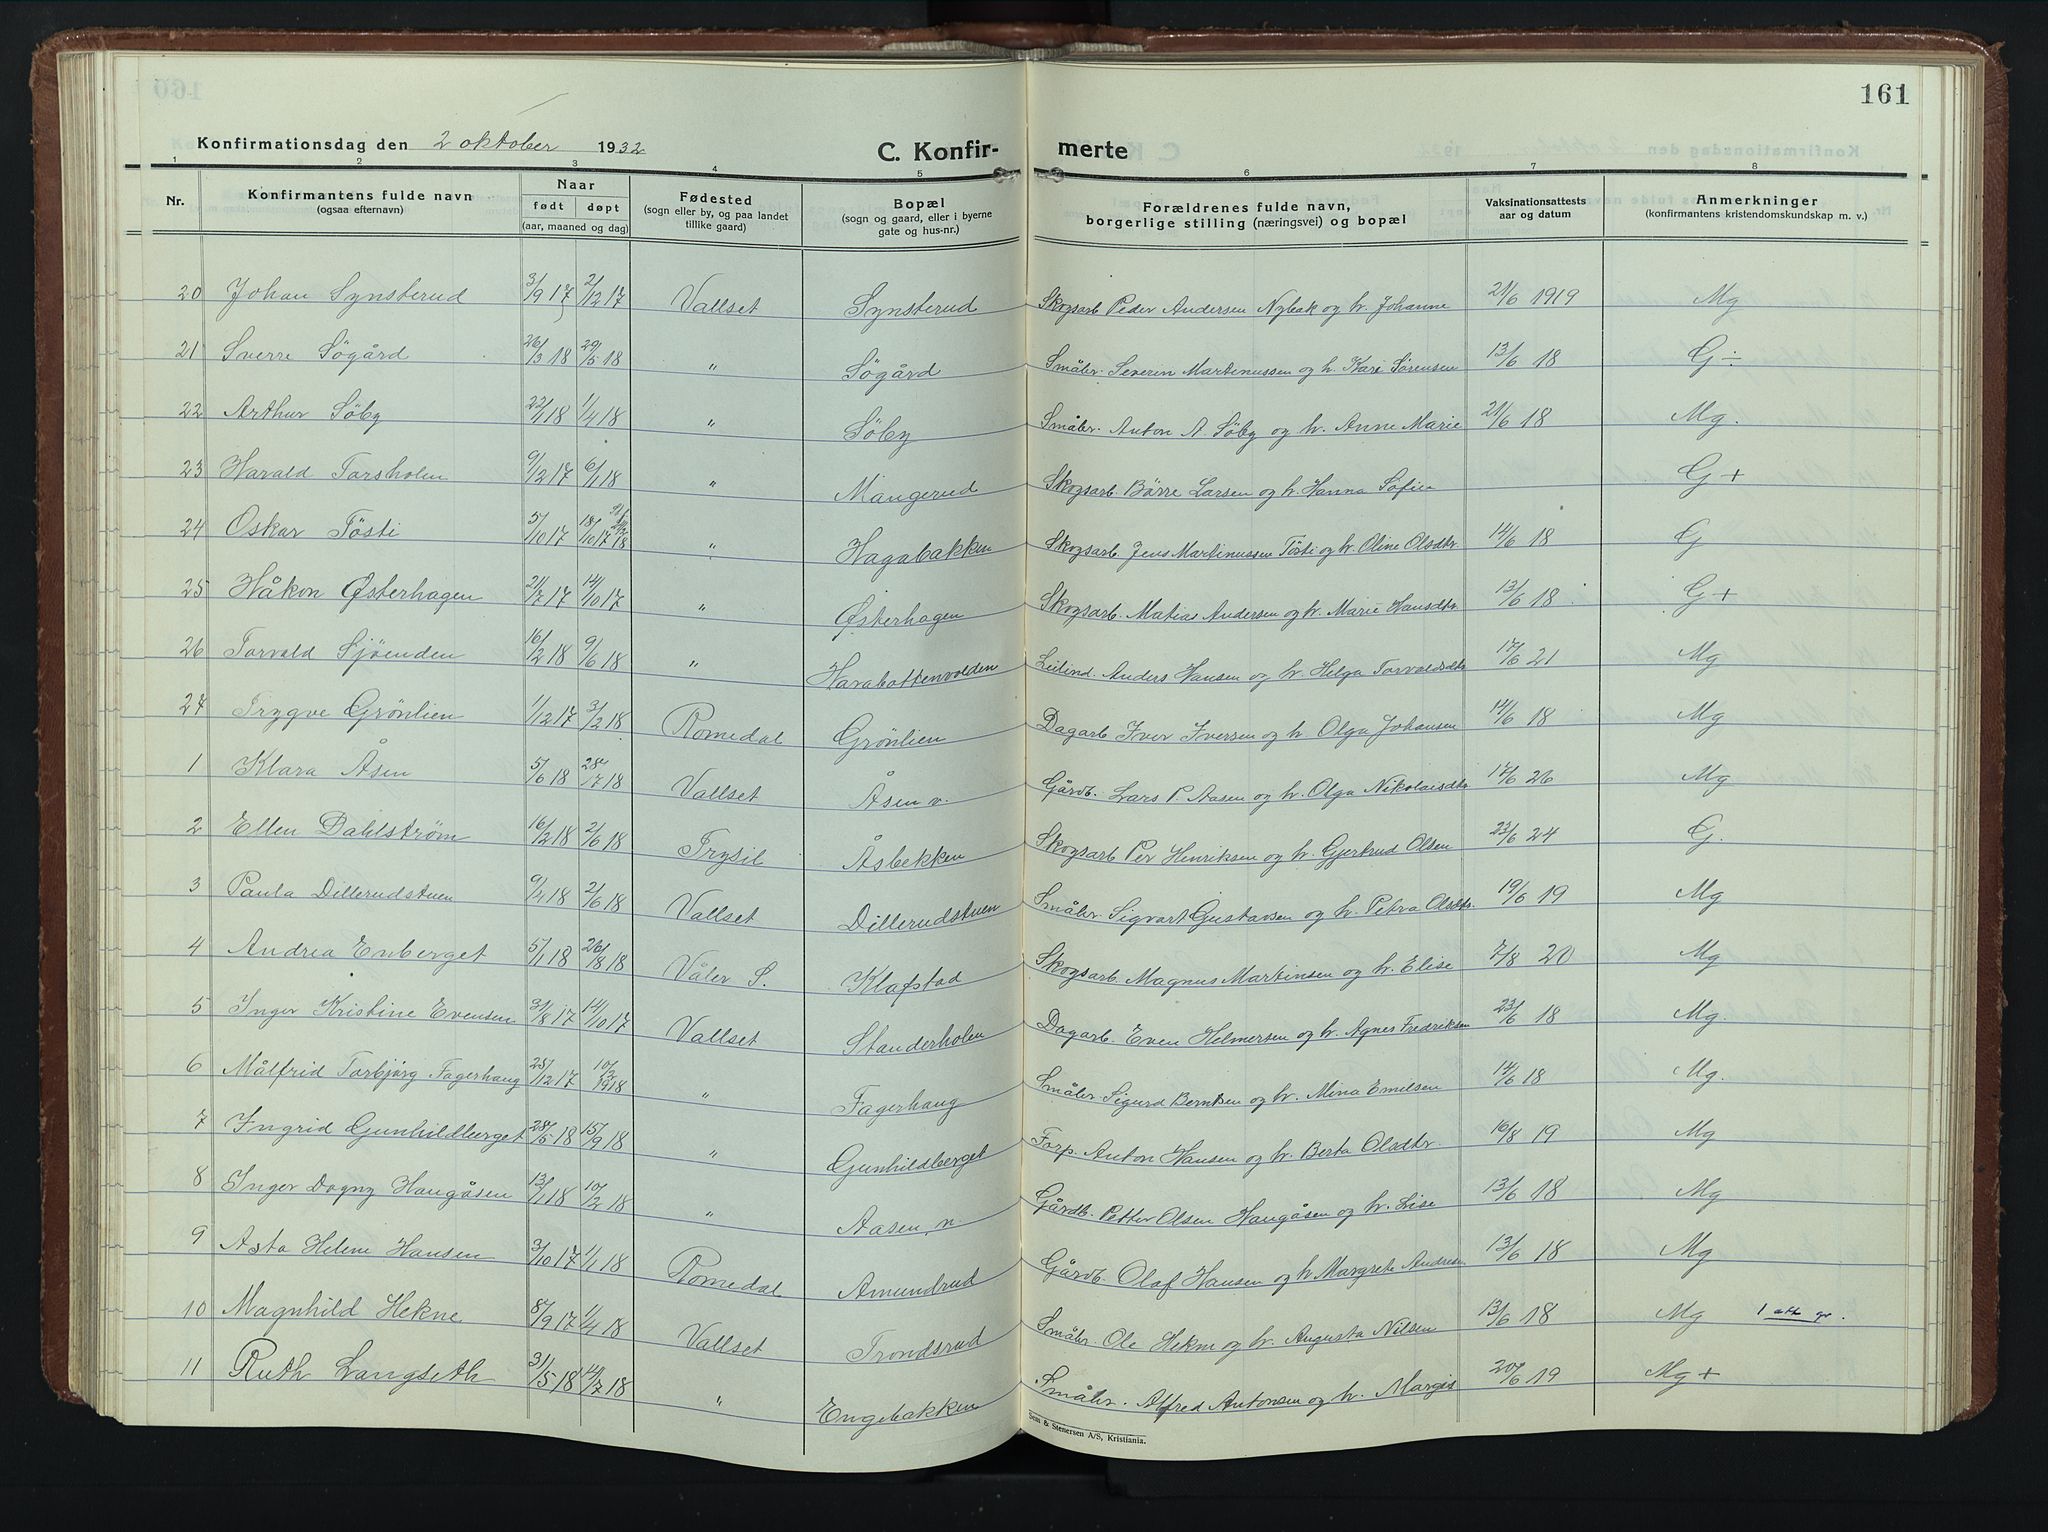 161
Konfirmationsdag den 2 oktober 1932
C. Konfir- merte
1 2 3 4 5 6 7 8
Nr. Konfirmantens fulde navn (ogsaa efternavn) Naar født døpt (aar, maaned og dag) Fødested (sogn eller by, og paa landet tillike gaard) Bopæl (sogn og gaard, eller i byerne gate og hus-nr.) Forældrenes fulde navn, borgerlige stilling (næringsvei) og bopæl Vaksinationsattests aar og datum Anmerkninger (konfirmantens kristendomskundskap m. v.)
20 Johan Synsterud 3/9 17 2/12 17 Vallset Synsterud Skogsarb. Peder Andersen Nybak og h. Johanne 21/6 1919 Mg
21 Sverre Søgård 26/3 18 29/5 18 " Søgård Småbr. Severin Martinussen og h. Kari Sørensen 13/6 18 G÷
22 Arthur Søby 22/1 18 1/4 18 " Søby Småbr. Anton A. Søby og h. Anne Marie 21/6 18 Mg.
23 Harald Torsholen 9/12 17 6/1 18 " Mangerud Skogsarb. Börre Larsen og h. Hanna Sofie G+
24 Oskar Tösti 5/10 17 18/10 17 " Hagabakken Skogsarb. Jens Martinussen Tösti og h. Oline Olsdtr. 14/6 18 G
25 Håkon Østerhagen 21/7 17 14/10 17 " Østerhagen Skogsarb. Matias Andersen og h. Marie Hansdtr. 13/6 18 G+
26 Torvald Sjöenden 16/2 18 9/6 18 " Harabottenvolden Leilind. Anders Hansen og h. Helga Torvaldsdtr. 17/6 21 Mg
27 Trygve Grönlien 1/12 17 3/2 18 Romedal Grönlien Dagarb. Iver Iversen og h. Olga Johansen 14/6 18 Mg
1 Klara Åsen 5/6 18 28/7 18 Vallset Åsen v. Gårdb. Lars P. Aasen og h. Olga Nikolaisdtr. 17/6 26 Mg
2 Ellen Dahlstrøm 16/2 18 2/6 18 Trysil Åsbekken Skogsarb. Per Henriksen og h. Gjertrud Olsen 23/6 24 G.
3 Paula Dillerudstuen 9/4 18 2/6 18 Vallset Dillerudstuen Småbr. Sigvart Gustavsen og h. Petra Olsdtr. 19/6 19 Mg
4 Andrea Enberget 5/1 18 26/8 18 Våler S. Klafstad Skogsarb. Magnus Martinsen og h. Elise 7/8 20 Mg
5 Inger Kristine Evensen 31/8 17 14/10 17 Vallset Standerholen Dagarb. Even Helmersen og h. Agnes Fredriksen 23/6 18 Mg.
6 Målfrid Torbjørg Fagerhaug 25/12 17 10/3 1918 " Fagerhaug Småbr. Sigurd Berntsen og h. Mina Emilsen 14/6 18 Mg.
7 Ingrid Gunhildberget 28/5 18 15/9 18 " Gunhildberget Forp. Anton Hansen og h. Berta Olsdtr. 16/8 19 Mg
8 Inger Dagny Haugåsen 13/1 18 10/2 18 " Aasen, n. Gårdb. Petter Olsen Haugåsen og h. Lise 13/6 18 Mg
9 Asta Helene Hansen 3/10 17 1/1 18 Romedal Amundrud Gårdb. Olaf Hansen og h. Margrete Andresen 13/6 18 Mg
10 Magnhild Hekne 8/9 17 1/4 18 Vallset Trondsrud Småbr. Ole Hekne og h. Augusta Nilsen 13/6 18 Mg 1 att gr.
11 Ruth Langseth 31/5 18 14/7 18 " Engebakken Småbr. Alfred Antonsen og h. Margit 20/6 19 Mg+
Sem & Stenersen A/S, Kristiania.